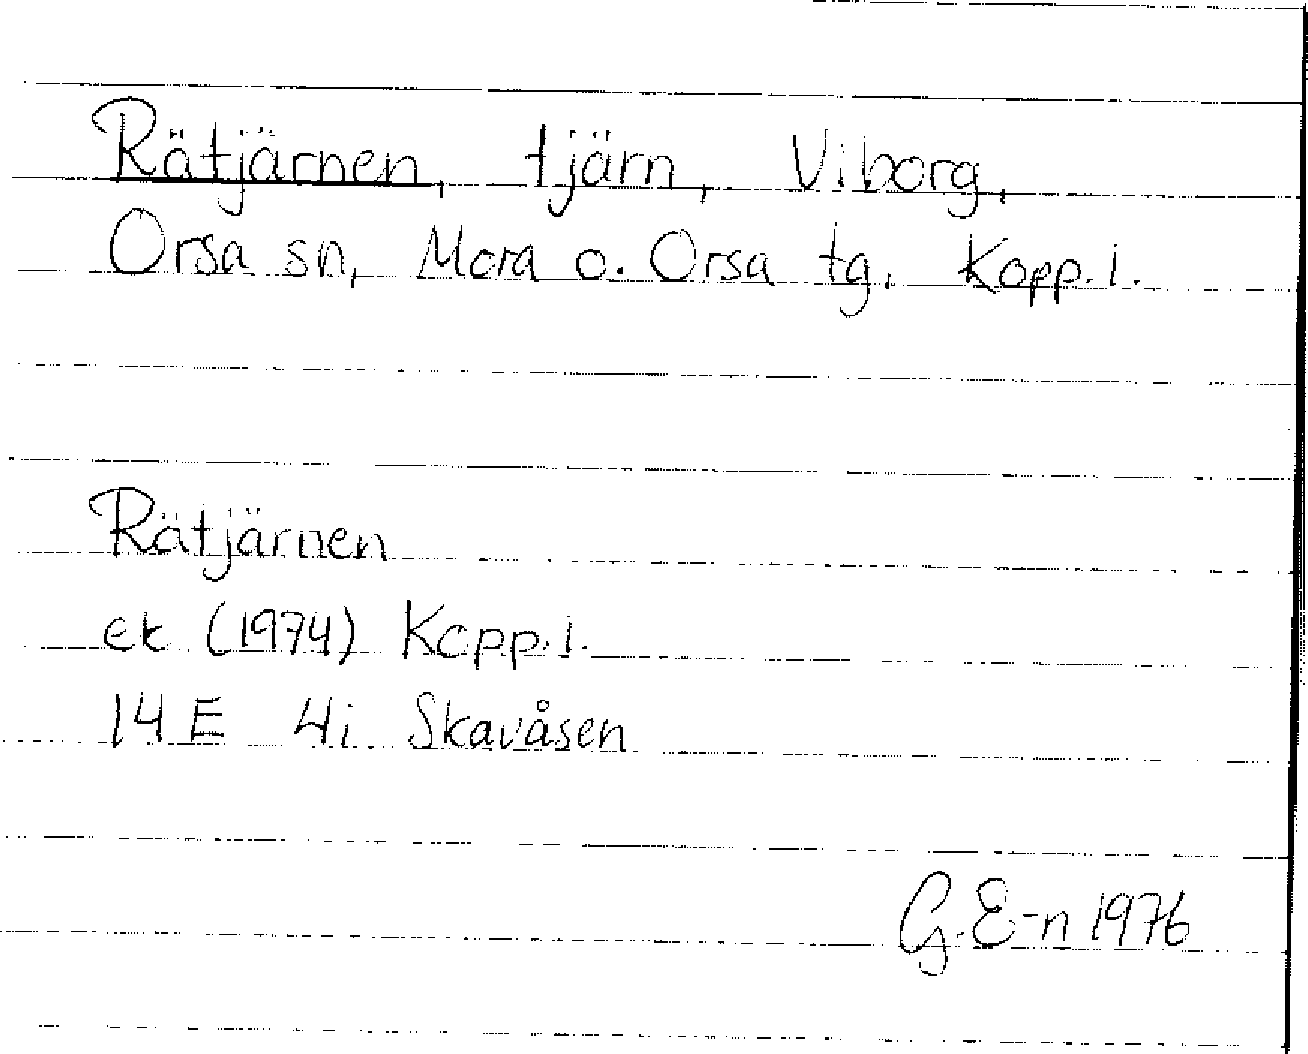 Rätjärnen, tjärn, Viborg,
Orsa sn, Mora o. Orsa tg. Kopp. l.
Rätjärnen
ek (1974) Kopp. l.
14E 4i Skavåsen
G. E-n 1976